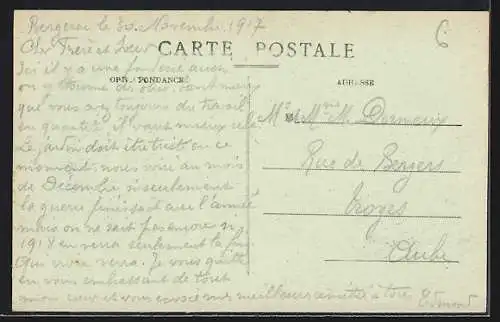 Bergerac le 30 Novembre 1917
Cher Frère et Sœur
CARTE POSTALE
CORRESPONDANCE
ADRESSE
Ici il y a une fonderie aussi
on y tourne des obus. tant mieux
que vous ayez toujours du travail
en quantité il vaut mieux cela.
Le jardon doit être triste en ce
moment. nous voici au mois
de Décembre si seulement
la guerre finissait avec l'année
mais on ne sait pas encore si
1918 en verra seulement la fin
Qui vivra verra. Je vous quitte
en vous embrassant de tout
mon cœur et vous envoie mes meilleures amitiés à tous
Edmond
Mr et Mme M. Dormeux
Rue de Bengers
Troyes
Aube
6